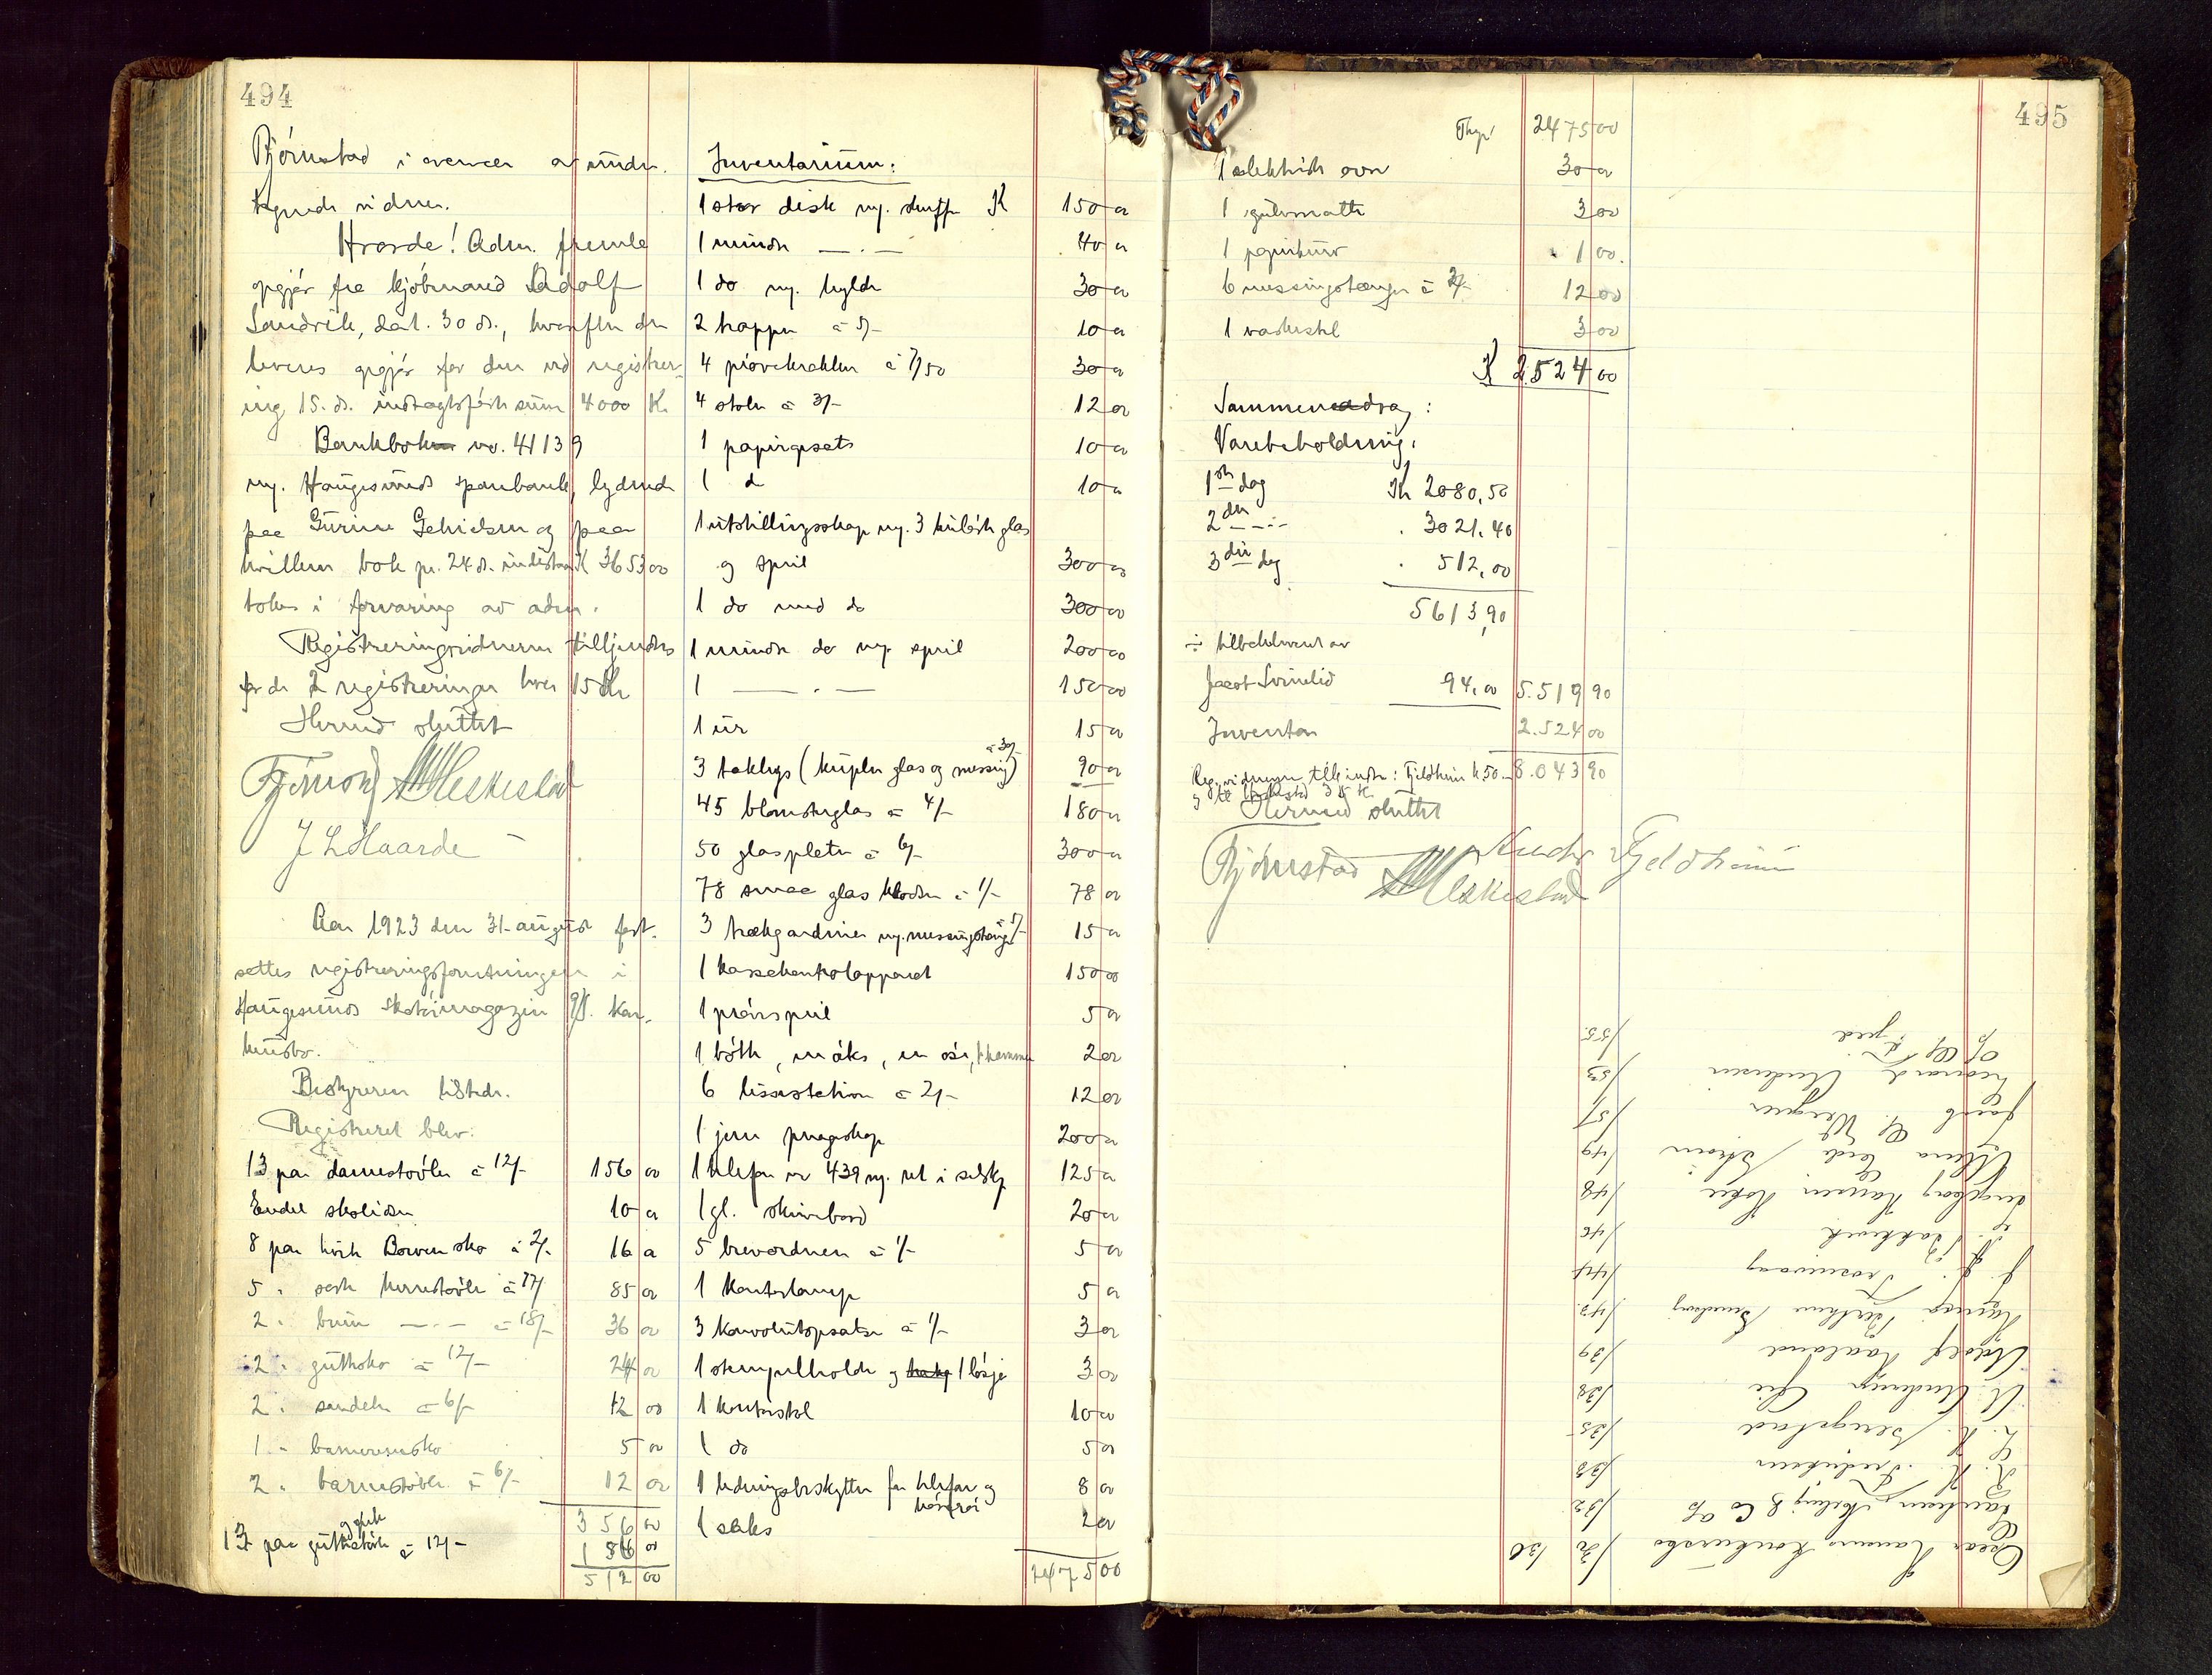 494
Bjørnstad i nærvær av undert.
tegnede vidner.
Haarde! Adm. fremla
opgjør fra kjøbmand Adolf
Sandvik, dat. 30 ds., hvorefter der
leveres opgjør for den ved registrer-
ing 15. ds. indtægtsførte sum 4000 K.
Bankbok no. 41139
i Haugesunds sparebank, lydende
paa Gurine Gehielsen og paa
hvilken bok pr. 24 ds. indestaar K 3653 00
tokes i forvaring av adm.
Registreringsvidnerne tilkjendtes
for de 2 registreringer hver 15 Kr
Hermed sluttet
Bjørnstad M Meskestad
J L Haarde
Aar 1923 den 31 august fort-
settes registreringsforretningen i
Haugesunds skotøimagazin A/S. kon-
kursbo.
Bestyreren tilstede.
Registreret blev:
13 par damestøvler à 12/- 156 00
Endel skolisser 10 00
8 par hvite Barnesko à 2/- 16 00
5 " sorte herrestøvler à 17/- 85 00
2 " brune —"— à 18/- 36 00
2 " guttesko à 12/- 24 00
2 " sandaler à 6/- 12 00
1 " barnesko 5 00
2 " barnestøvler à 6/- 12 00
356 00
13 par guttestøvler à 12/- 156 00
512 00
Inventarium:
1 stor disk m. skuffer K 150 00
1 mindre —"— 40 00
1 do m. hylder 30 00
2 trapper à 5/- 10 00
4 prøvekrakker à 7/50 30 00
4 stoler à 3/- 12 00
1 papirgsats 10 00
1 do 10 00
1 utstillingsskap m. 3 kulørte glas
og speil 300 00
1 do med do 300 00
1 mindre do m. speil 200 00
1 —"— 150 00
1 ur 15 00
3 taklys (kupler glas og messing) à 30/- 90 00
45 blomsterglas à 4/- 180 00
50 glasplater à 6/- 300 00
78 smaa glas klodser à 1/- 78 00
3 trækgardiner m. messingstænger à 5/- 15 00
1 kassekontrolapparat 150 00
1 prøvespeil 5 00
1 bøtte, en øks, en øse, 1 hammer 2 00
6 lissestativer à 2/- 12 00
1 jern pengeskap 200 00
1 telefon nr 439 m. ret i selsk. 125 00
1 gl. skrivebord 20 00
5 brevordnere à 1/- 5 00
1 kontorlampe 5 00
3 konvoluttopsatser à 1/- 3 00
1 stempelholder og 1 løsje 3 00
1 kontorstol 10 00
1 do 5 00
1 ledningsbeskytter for telefon og
hørerør 8 00
1 saks 2 00
2475 00
495
Transp. 2475 00
1 elektrisk ovn 30 00
1 gulvmatte 3 00
1 papirkurv 1 00
6 messingstænger à 2/- 12 00
1 vaskestel 3 00
K 2524 00
Sammendrag:
Varebeholdning:
1ste dag Kr 2080,50
2den —"— " 3021,40
3die dag " 512,00
5613,90
÷ tilbakeleveret av
Jacob Svinelid 94,00 5.519 90
Inventar 2.524 00
8.043 90
Reg. vidnerne tilkjendtes: Fjeldheim K 50.-
og til Meskestad 35 K.
Hermed sluttet
Bjørnstad Anders Fjeldheim
M Meskestad
Oscar Hansens konkursbo /30 130
/32
R. H. Fredriksen /33
L. K. Bergstad /35
A. Andreas Lie /38
Adolf Haaland /39
/43
J. J. Rossevaag /44
J. Bakkevik /46
Ingeborg Hansen /48
/49
Jacob Wegner /51
Leonard Andersen /53
/55